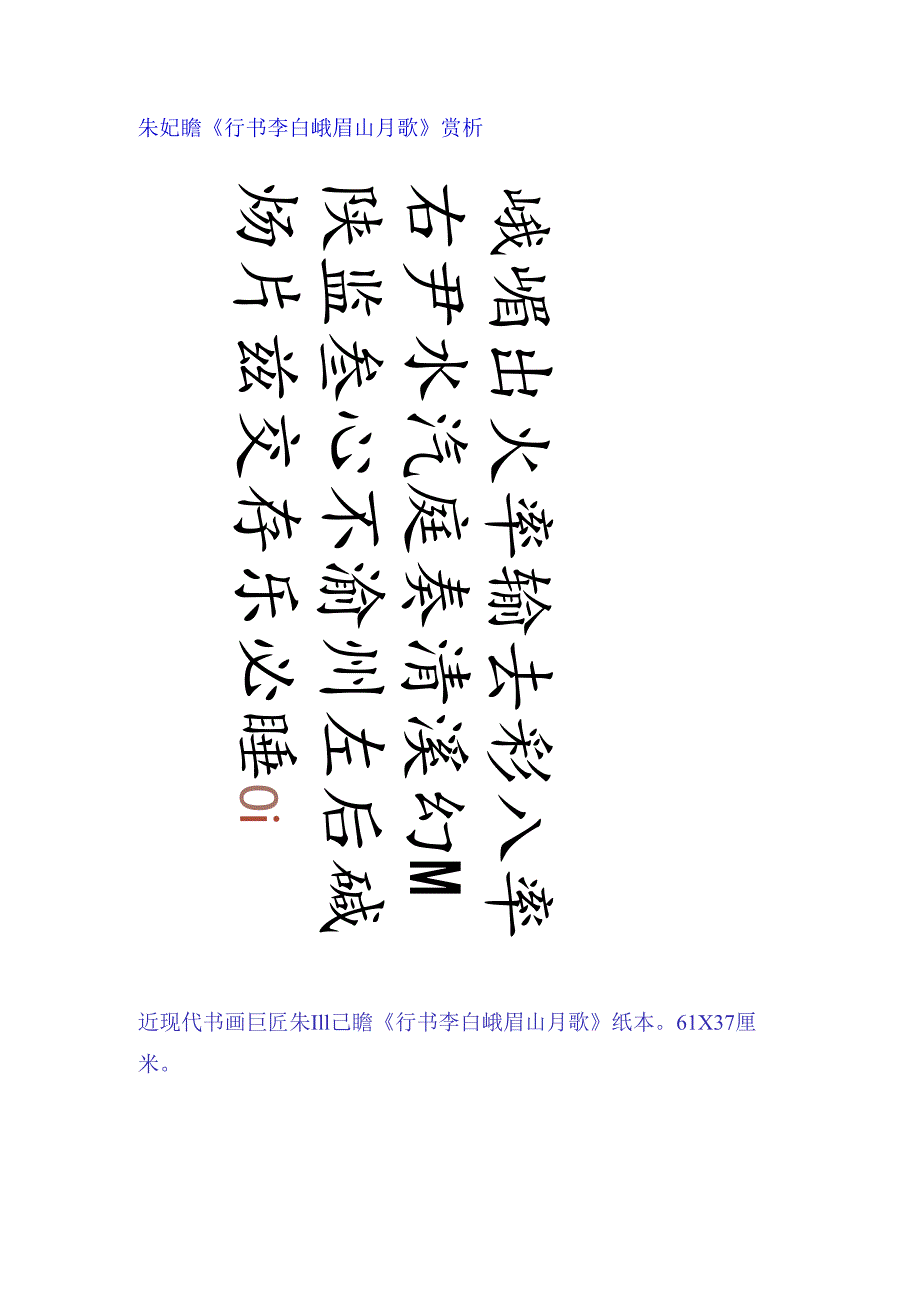 朱妃瞻《行书李白峨眉山月歌》赏析
峨嵋出火率输去彩入率
右尹水汽庭奏清溪幻M
陕监叁心不渝州左后碱
炀片兹交存乐必睡0i
近现代书画巨匠朱Ill己瞻《行书李白峨眉山月歌》纸本。61X37厘
米。